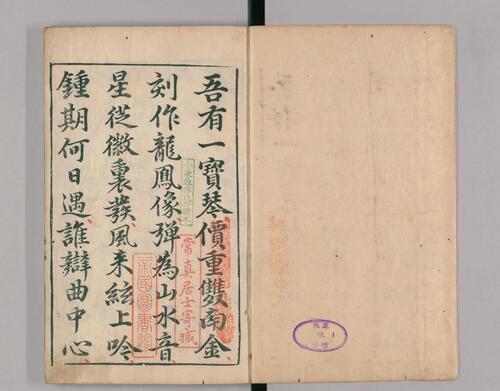 吾有一寳琴價重雙南金
刻作龍鳳像彈為山水音
星從徽裏發風来絃上吟
鍾期何日遇誰辯曲中心
常真居士寄藏